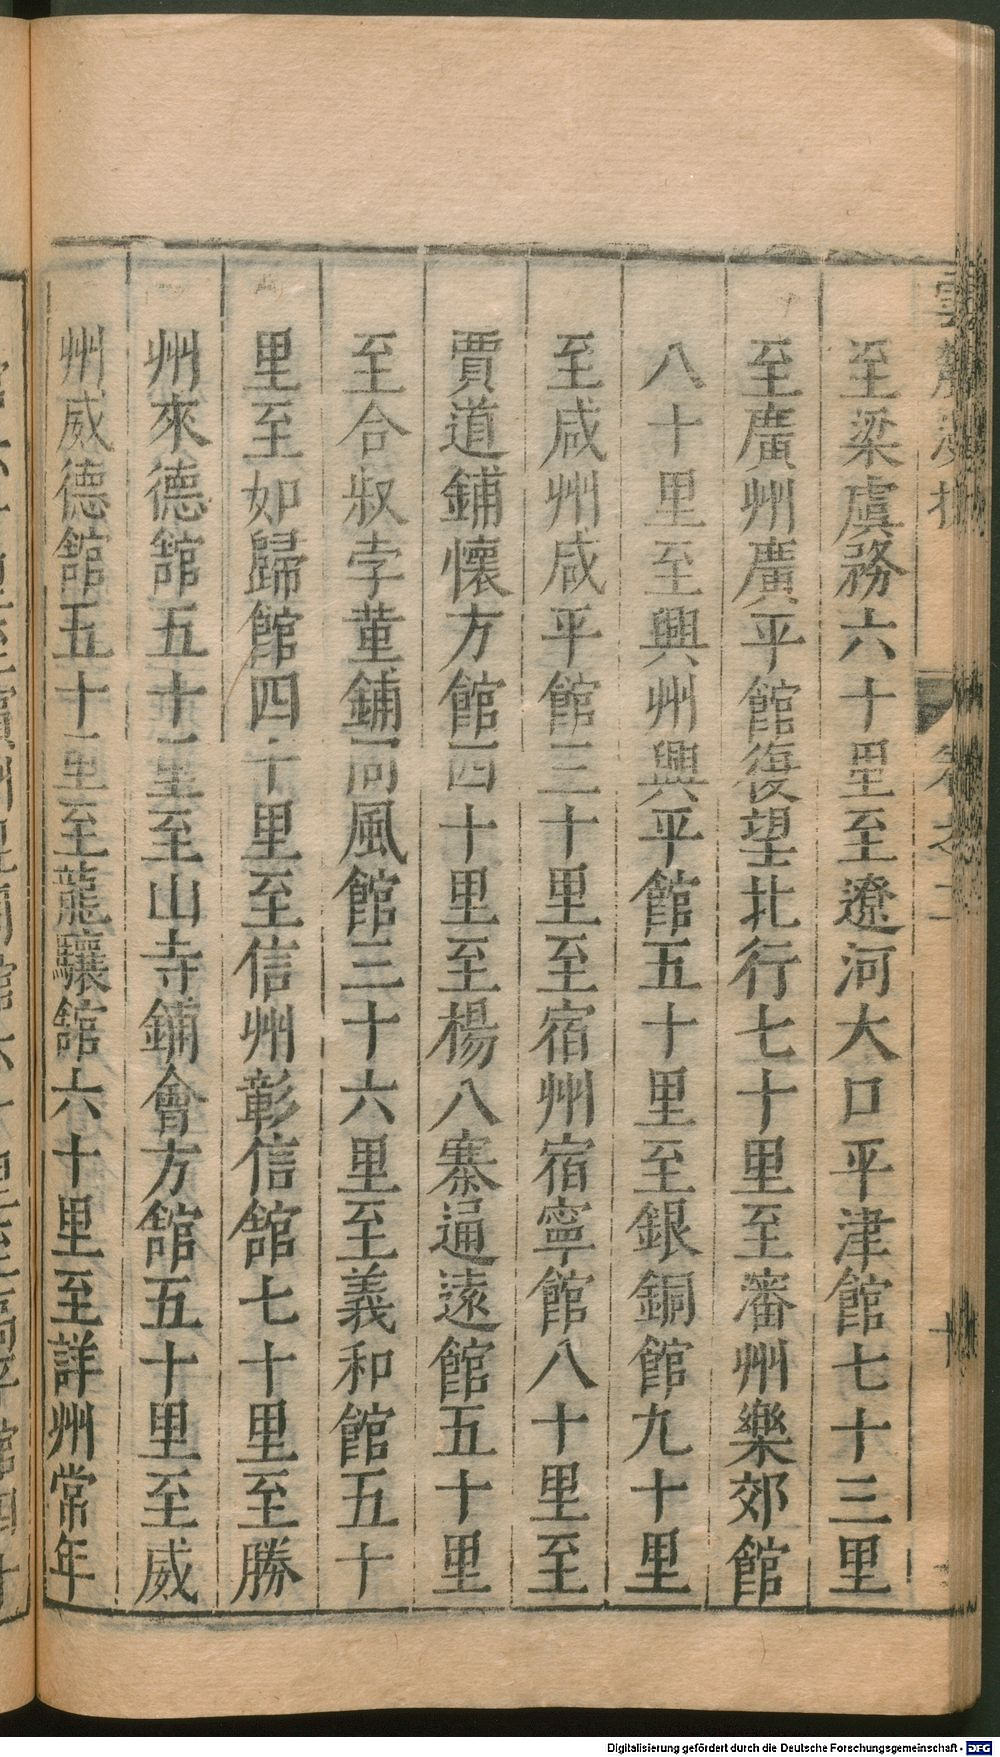 至梁虞務六十里至遼河大口平津館七十三里
至廣州廣平館復望北行七十里至瀋州樂郊館
八十里至興州興平館五十里至銀銅館九十里
至咸州咸平館三十里至宿州宿寧館八十里至
賈道鋪懷方館四十里至楊八寨通遠館五十里
至合叔孛菫鋪同風館三十六里至義和館五十
里至如歸館四十里至信州彰信舘七十里至勝
州來德舘五十里至山寺鋪會方舘五十里至威
州威德舘五十里至龍驤舘六十里至詳州常年
卷之二
Digitalisierung gefördert durch die Deutsche Forschungsgemeinschaft - DFG